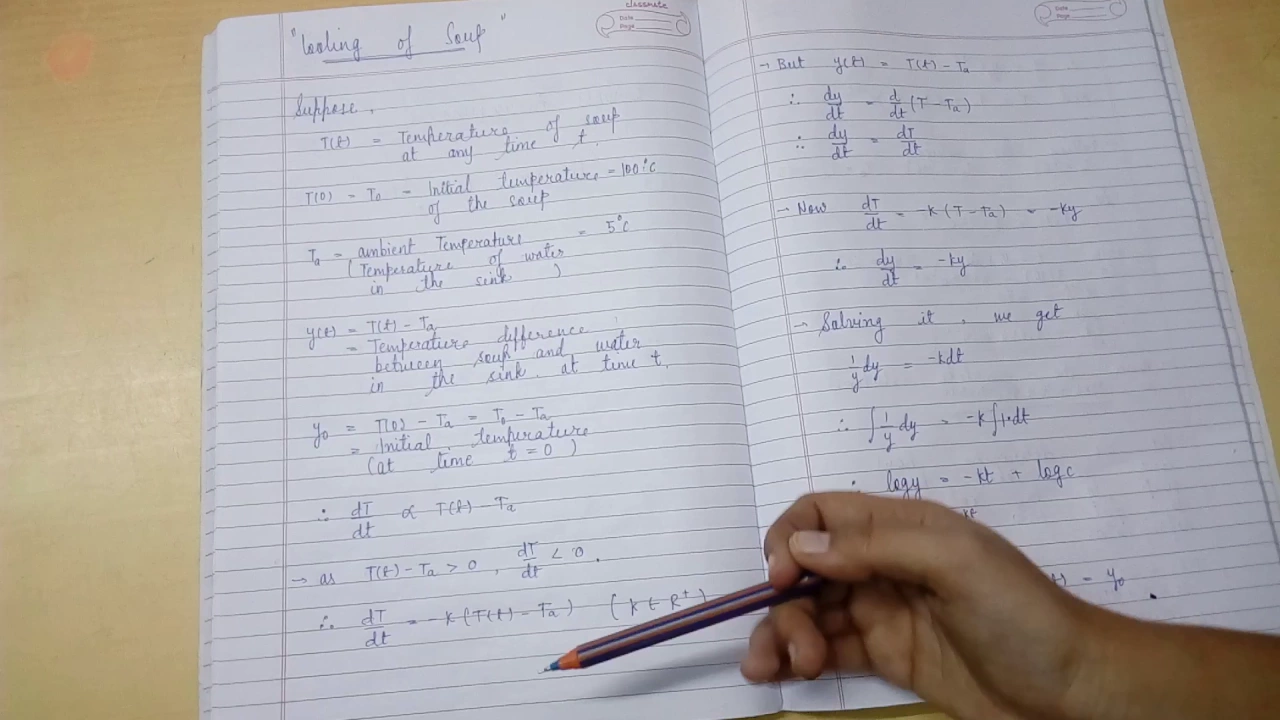 "Cooling of Soup"
classmate
Date
Page
Suppose,
T(t) = Temperature of soup
at any time t.
T(0) = T₀ = Initial temperature = 100°C
of the soup
Tₐ = ambient Temperature = 5°C
(Temperature of water
in the sink)
y(t) = T(t) - Tₐ
= Temperature difference
between soup and water
in the sink at time t.
y₀ = T(0) - Tₐ = T₀ - Tₐ
= Initial temperature
(at time t = 0)
∴ dT/dt ∝ T(t) - Tₐ
→ as T(t) - Tₐ > 0, dT/dt < 0.
∴ dT/dt = -k(T(t) - Tₐ) (k ∈ R⁺)
Date
Page
→ But y(t) = T(t) - Tₐ
∴ dy/dt = d/dt (T - Tₐ)
∴ dy/dt = dT/dt
→ Now dT/dt = -k(T - Tₐ) = -ky
∴ dy/dt = -ky
→ Solving it, we get
1/y dy = -kdt
∴ ∫ 1/y dy = -k∫1·dt
∴ logy = -kt + logc
= y₀